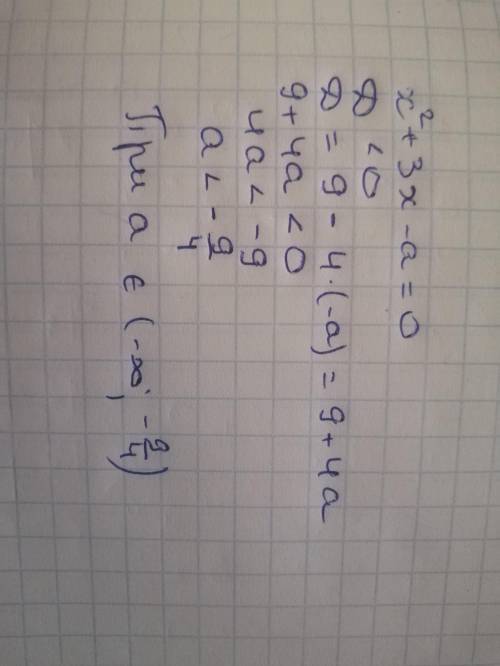 x² + 3x - a = 0
D < 0
D = 9 - 4·(-a) = 9 + 4a
9 + 4a < 0
4a < -9
a < -9/4
При a ∈ (-∞; -9/4)